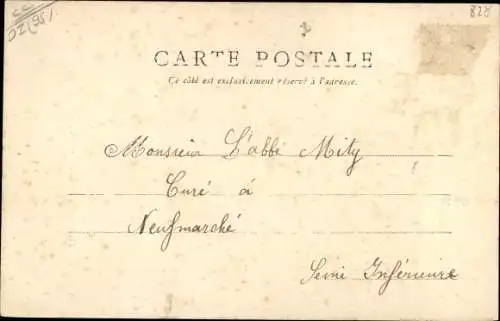 CC
OI(95)
828
CARTE POSTALE
Ce côté est exclusivement réservé à l'adresse.
Monsieur L'abbé Mity
Curé à
Neufmarché
Seine Inférieure